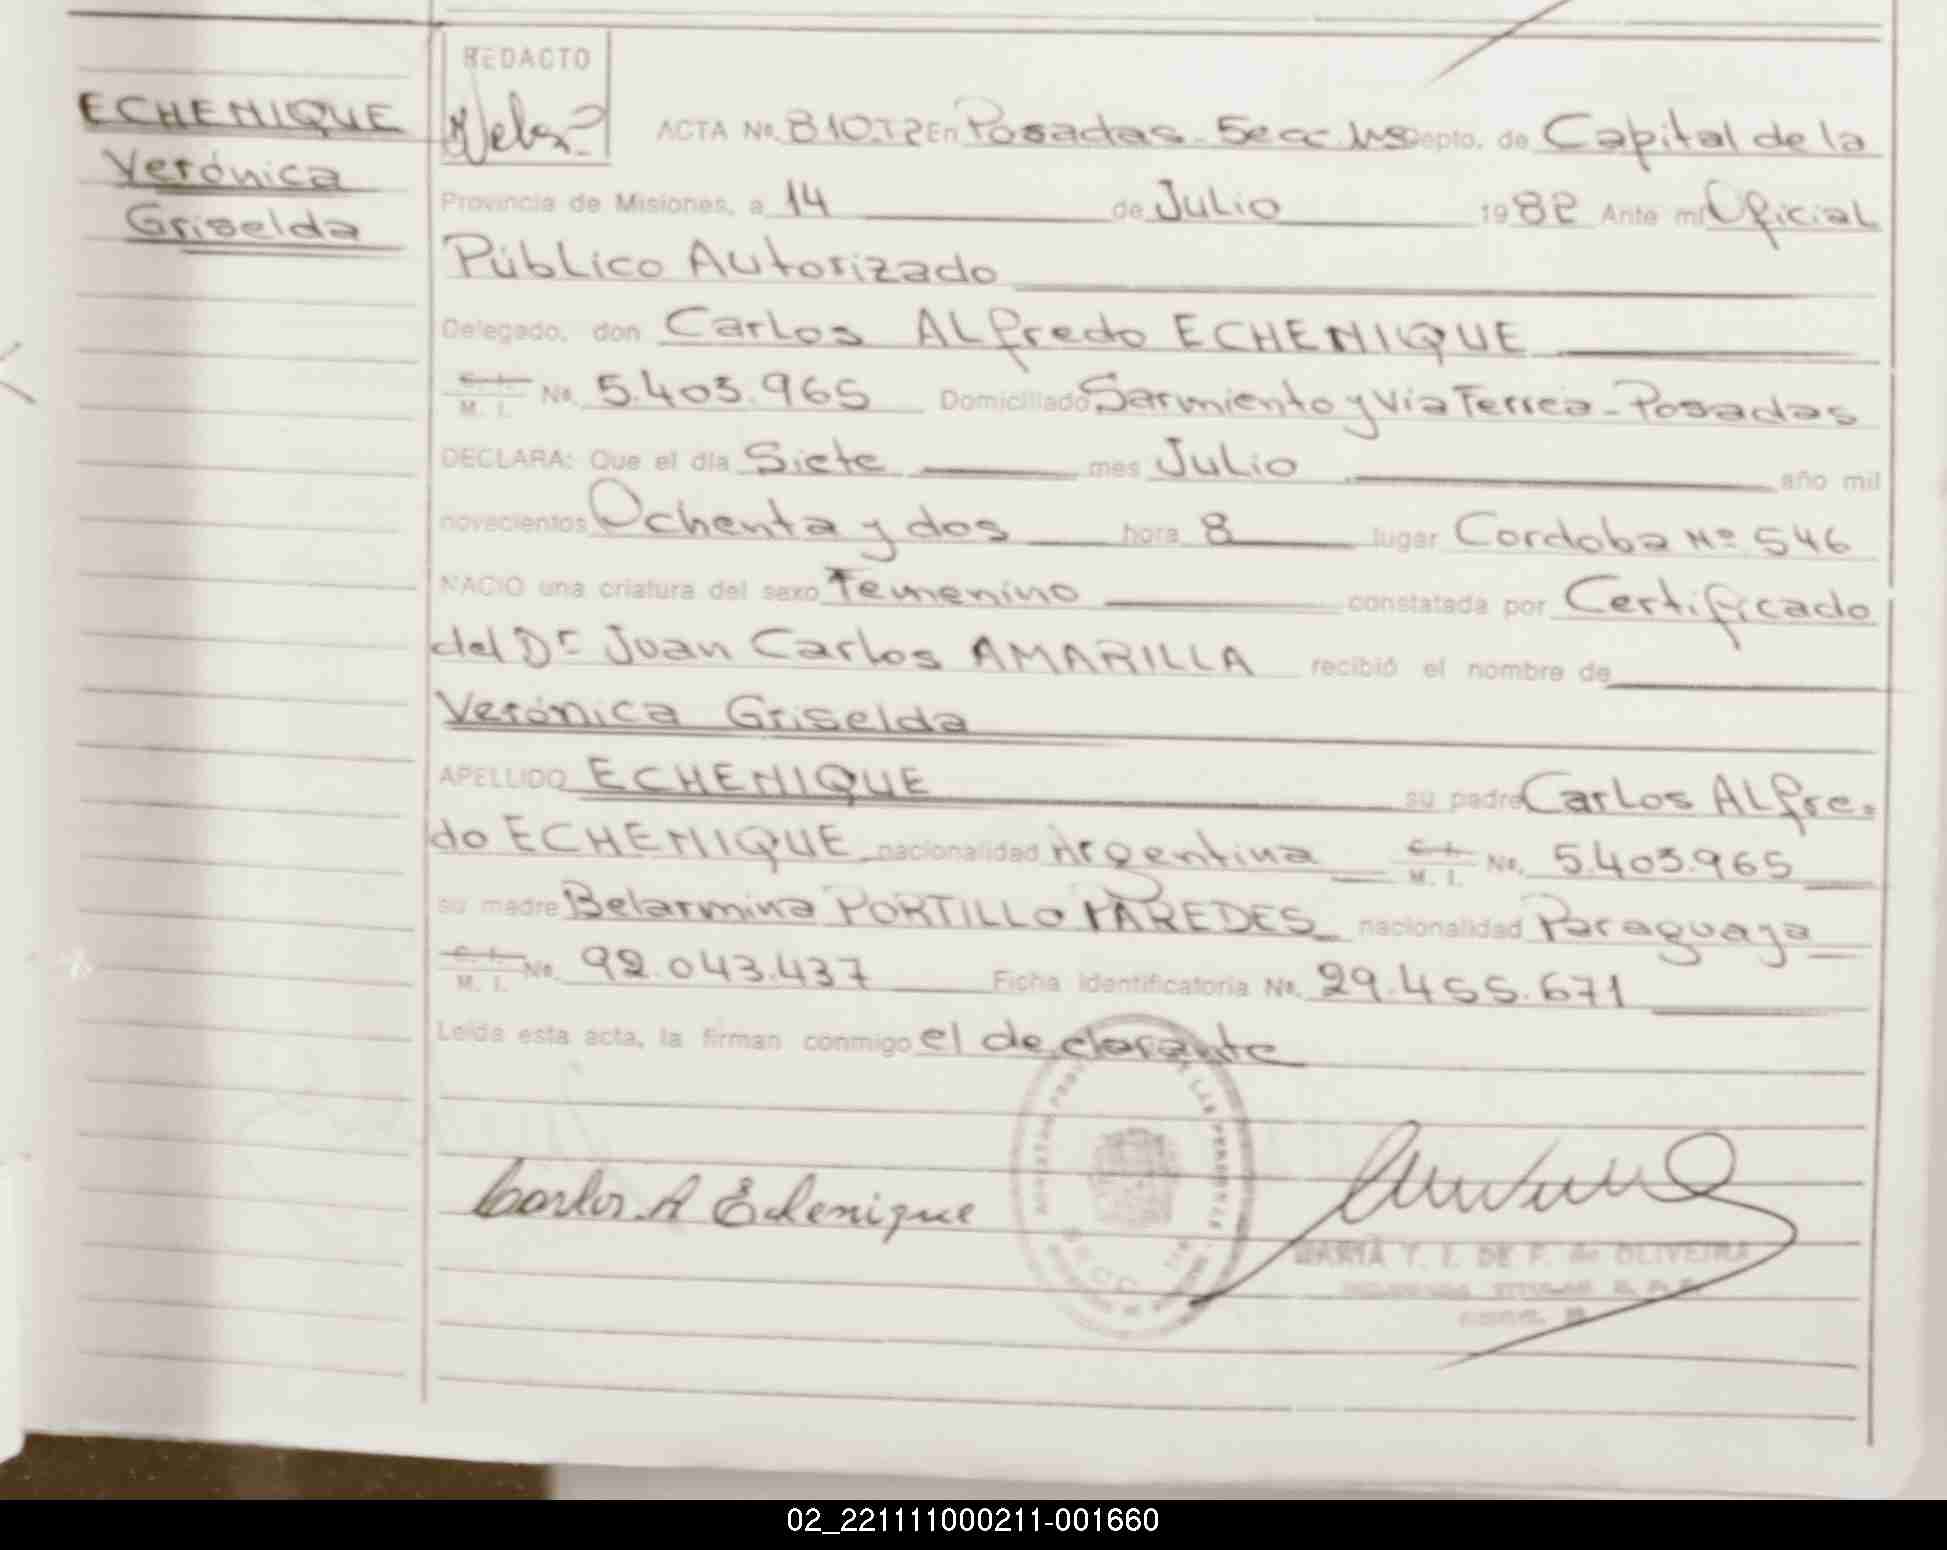 REDACTO
ECHENIQUE
Verónica
Griselda
ACTA No. 810.T2 En Posadas - Secc Depto. de Capital de la
Provincia de Misiones, a 14 de Julio 1982 Ante mí Oficial
Público Autorizado
Delegado, don Carlos Alfredo ECHENIQUE
C. I.
M. I. No. 5.403.965 Domiciliado Sarmiento y Via Ferrea - Posadas
DECLARA: Que el día Siete mes Julio año mil
novecientos Ochenta y dos hora 8 lugar Cordoba Nº 546
NACIO una criatura del sexo Femenino constatada por Certificado
del Dr Juan Carlos AMARILLA recibió el nombre de
Verónica Griselda
APELLIDO ECHENIQUE su padre Carlos Alfre-
do ECHENIQUE nacionalidad Argentina C. I.
M. I. No. 5.403.965
su madre Belarmina PORTILLO PAREDES nacionalidad Paraguaya
C. I.
M. I. No. 92.043.437 Ficha identificatoria No. 29.455.671
Leída esta acta, la firman conmigo el declarante
Carlos A Echenique
MARIA T. I. DE F. de OLIVEIRA
02_221111000211-001660